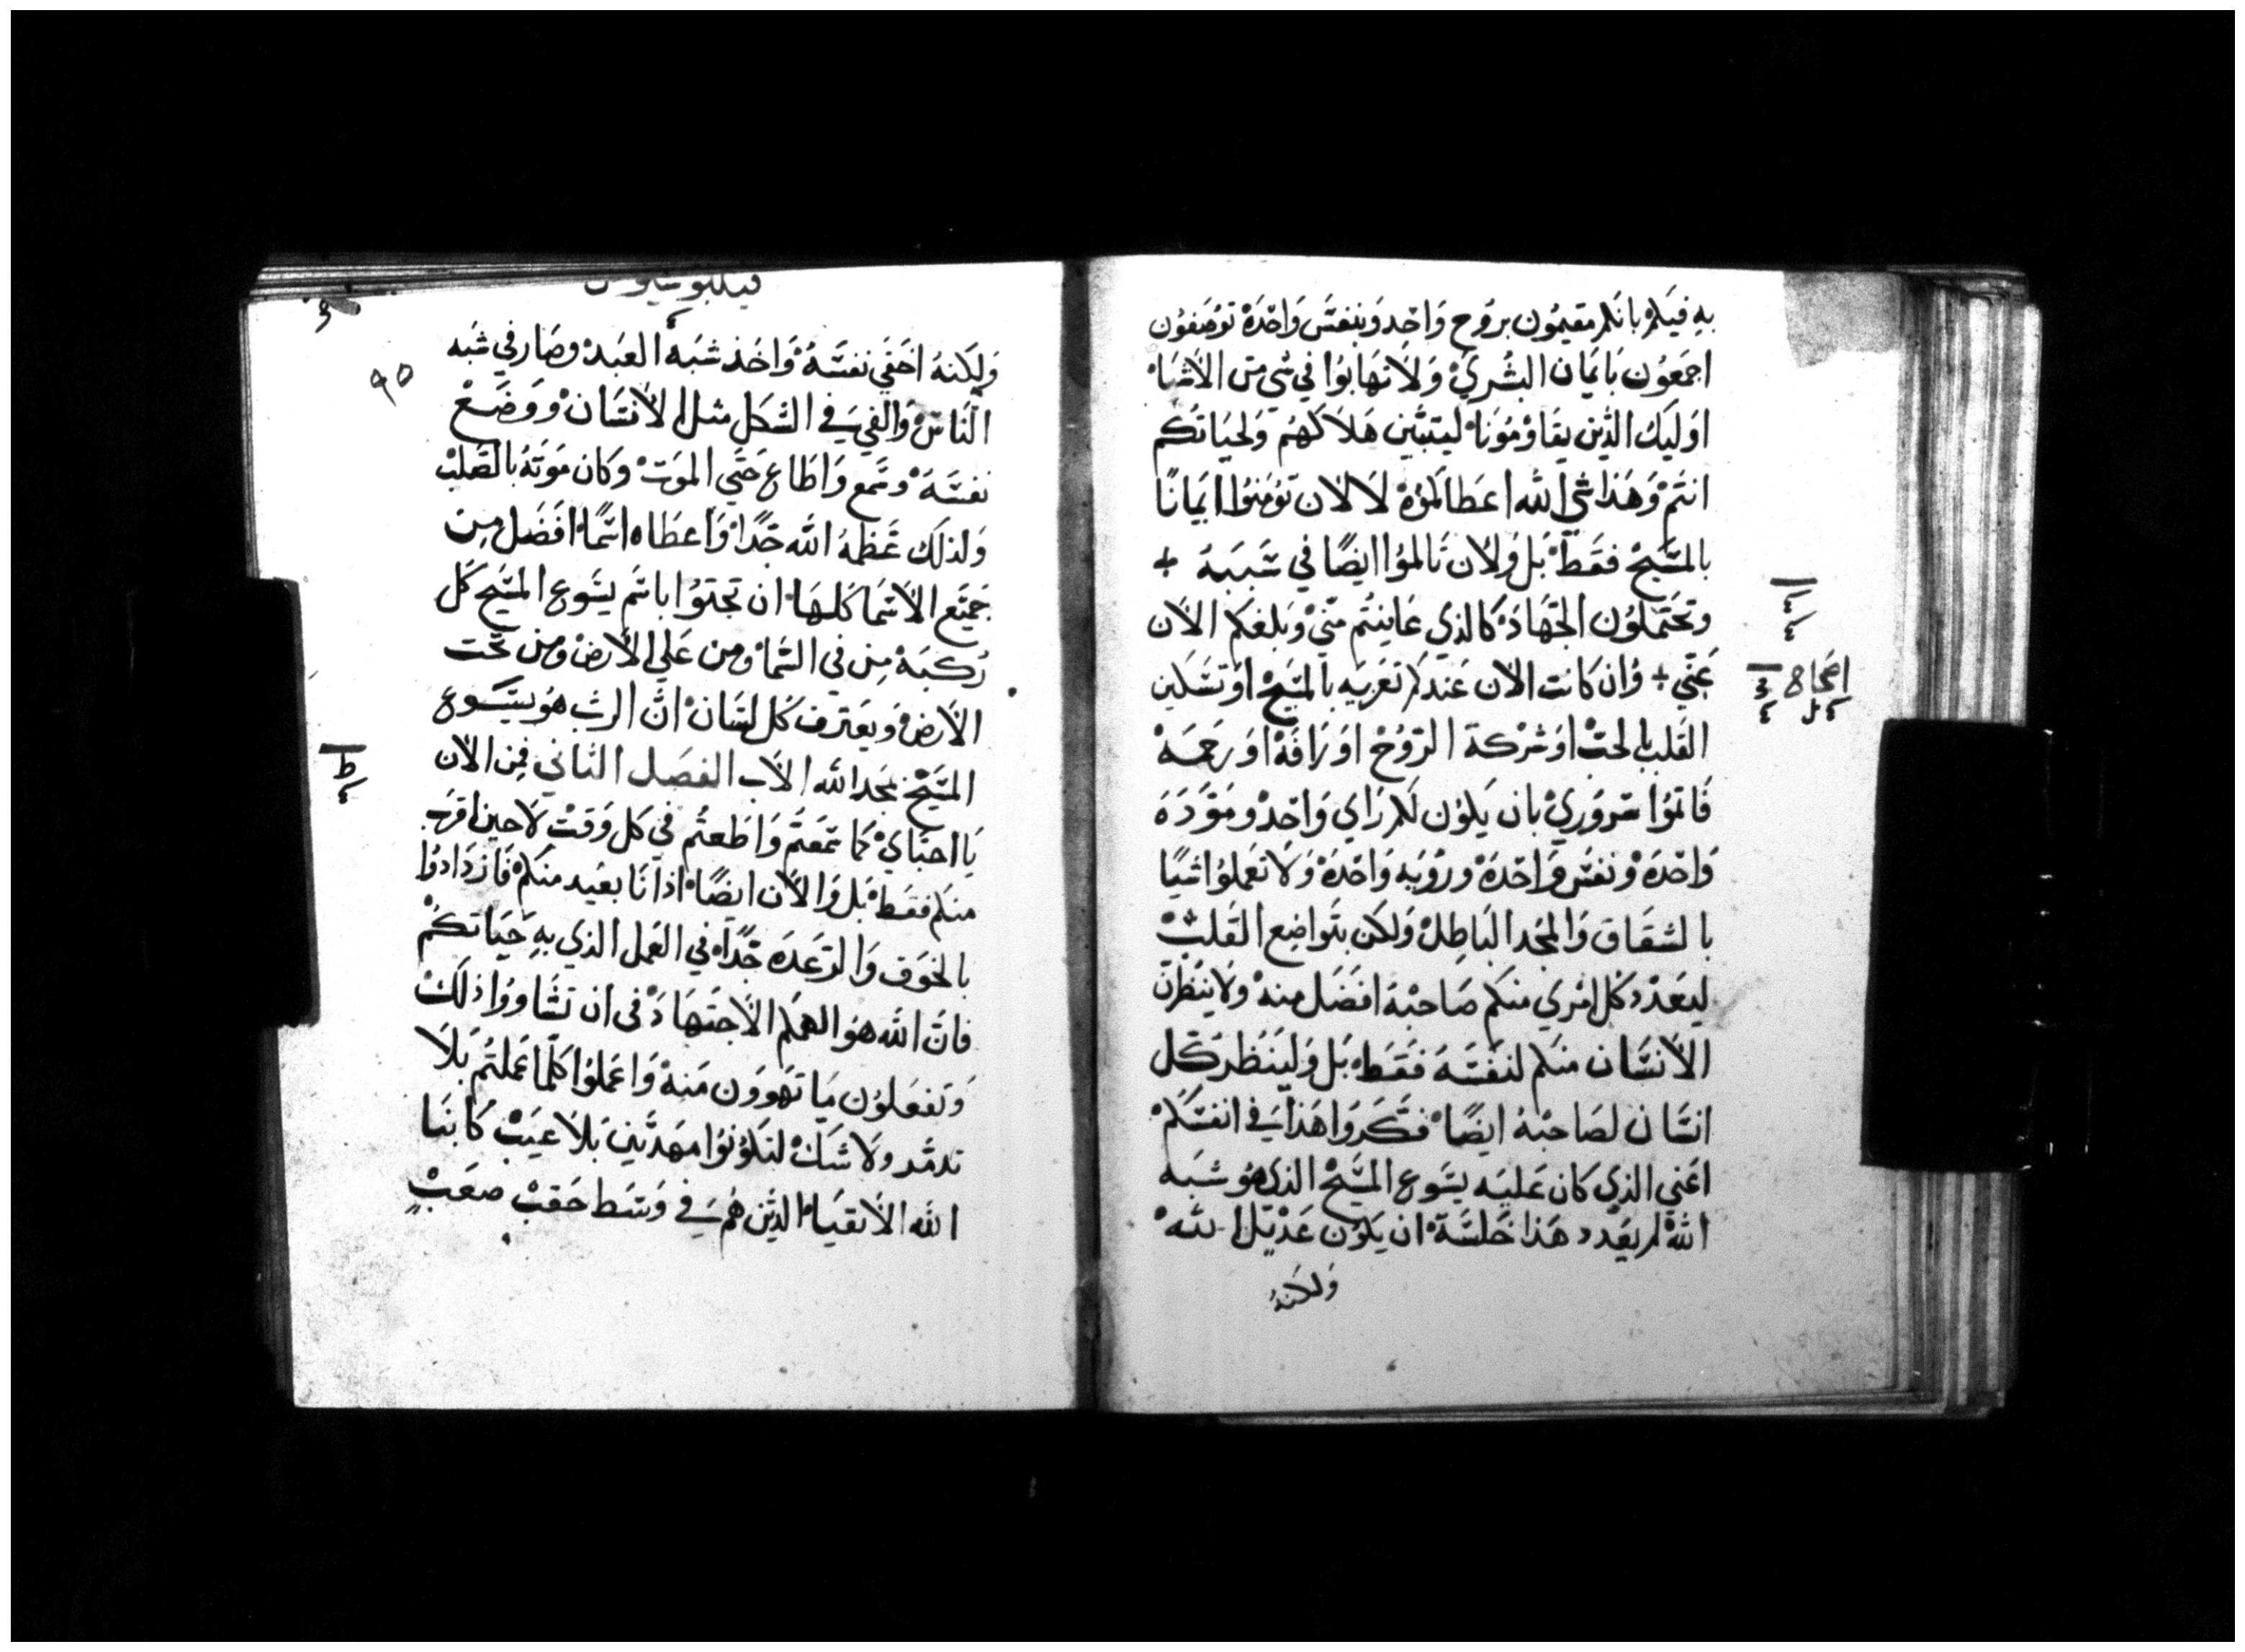 به فيكم بانكم مقيمون بروح واحد وبنفس واحدة توصفون
اجمعون بايمان البشري ولا تهابوا في شي من الاشيا
اوليك الذين يقاومونا ليتبين هلاكهم ولحياتكم
انتم وهذا شي الله اعطاكموه لا لان تومنوا ايمانا
بالمسيح فقط بل ولان تالموا ايضا في سببه +
وتحتملون الجهاد كالذي عاينتم مني وبلغكم الان
عني + وان كانت الان عندكم تعزيه بالمسيح او تسكين
القلب بالحب او شركة الروح او رافة او رحمه
فاتموا سروري بان يكون لكم راي واحد ومودة
واحدة ونفس واحدة وروية واحدة ولا تعملوا شيا
بالشقاق والمجد الباطل ولكن بتواضع القلب
ليعدد كل امري منكم صاحبه افضل منه ولا ينظرن
الانسان منكم لنفسه فقط بل ولينظر كل
انسان لصاحبه ايضا فكروا هذا في انفسكم
اعني الذي كان عليه يسوع المسيح الذي هو شبه
الله لم يعدد هذا خلسة ان يكون عديل الله
ولكنه
اصحاح
فيلبوسيوس
٩٥
ولكنه اخفي نفسه واخذ شبه العبد وصار في شبه
الناس والفي في الشكل مثل الانسان ووضع
نفسه وسمع واطاع حتي الموت وكان موته بالصلب
ولذلك عظمه الله جدا واعطاه اسما افضل من
جميع الاسما كلها ان تجتوا باسم يسوع المسيح كل
ركبة من في السما ومن علي الارض ومن تحت
الارض ويعترف كل لسان ان الرب هو يسوع
المسيح لمجد الله الاب الفصل الثاني فمن الان
يا احباي كما سمعتم واطعتم في كل وقت لا حين اقرب
منكم فقط بل والان ايضا اذ انا بعيد منكم فازدادوا
بالخوف والرعدة جدا في العمل الذي به حياتكم
فان الله هو الهمكم الاجتهاد في ان تشاووا ذلك
وتفعلون ما تهوون منه واعملوا كلما عملتم بلا
تدمد ولا شك لتكونوا مهدبين بلا عيب كابنا
الله الانقيا الذين هم في وسط حقب صعب
ط